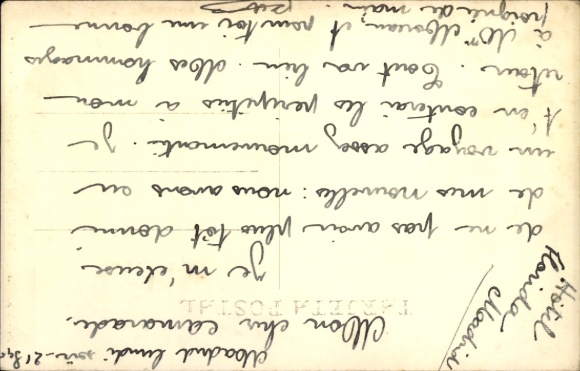 Madrid lundi soir - 21 Sep
Mon cher camarade,
TARJETA POSTAL
Hôtel
Florida
Madrid
Je m'excuse
de ne pas avoir plus tôt donné
de mes nouvelles : nous avons eu
un voyage assez mouvementé. Je
t'en conterai les péripéties à mon
retour. Tout va bien. Mes hommages
à Mme Moreau, et pour toi une bonne
poignée de main.